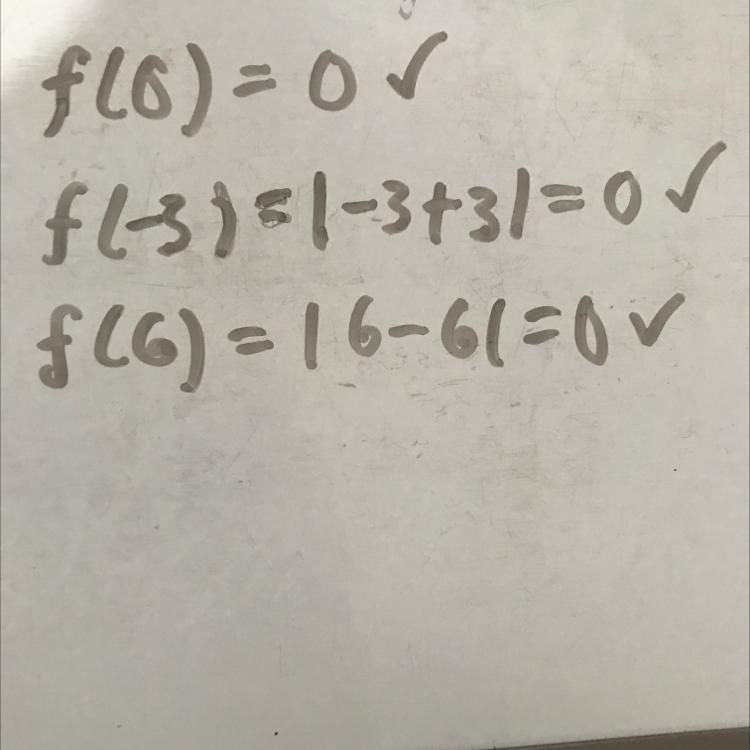 f(0) = 0 ✓
f(-3) = |-3+3| = 0 ✓
f(6) = |6-6| = 0 ✓